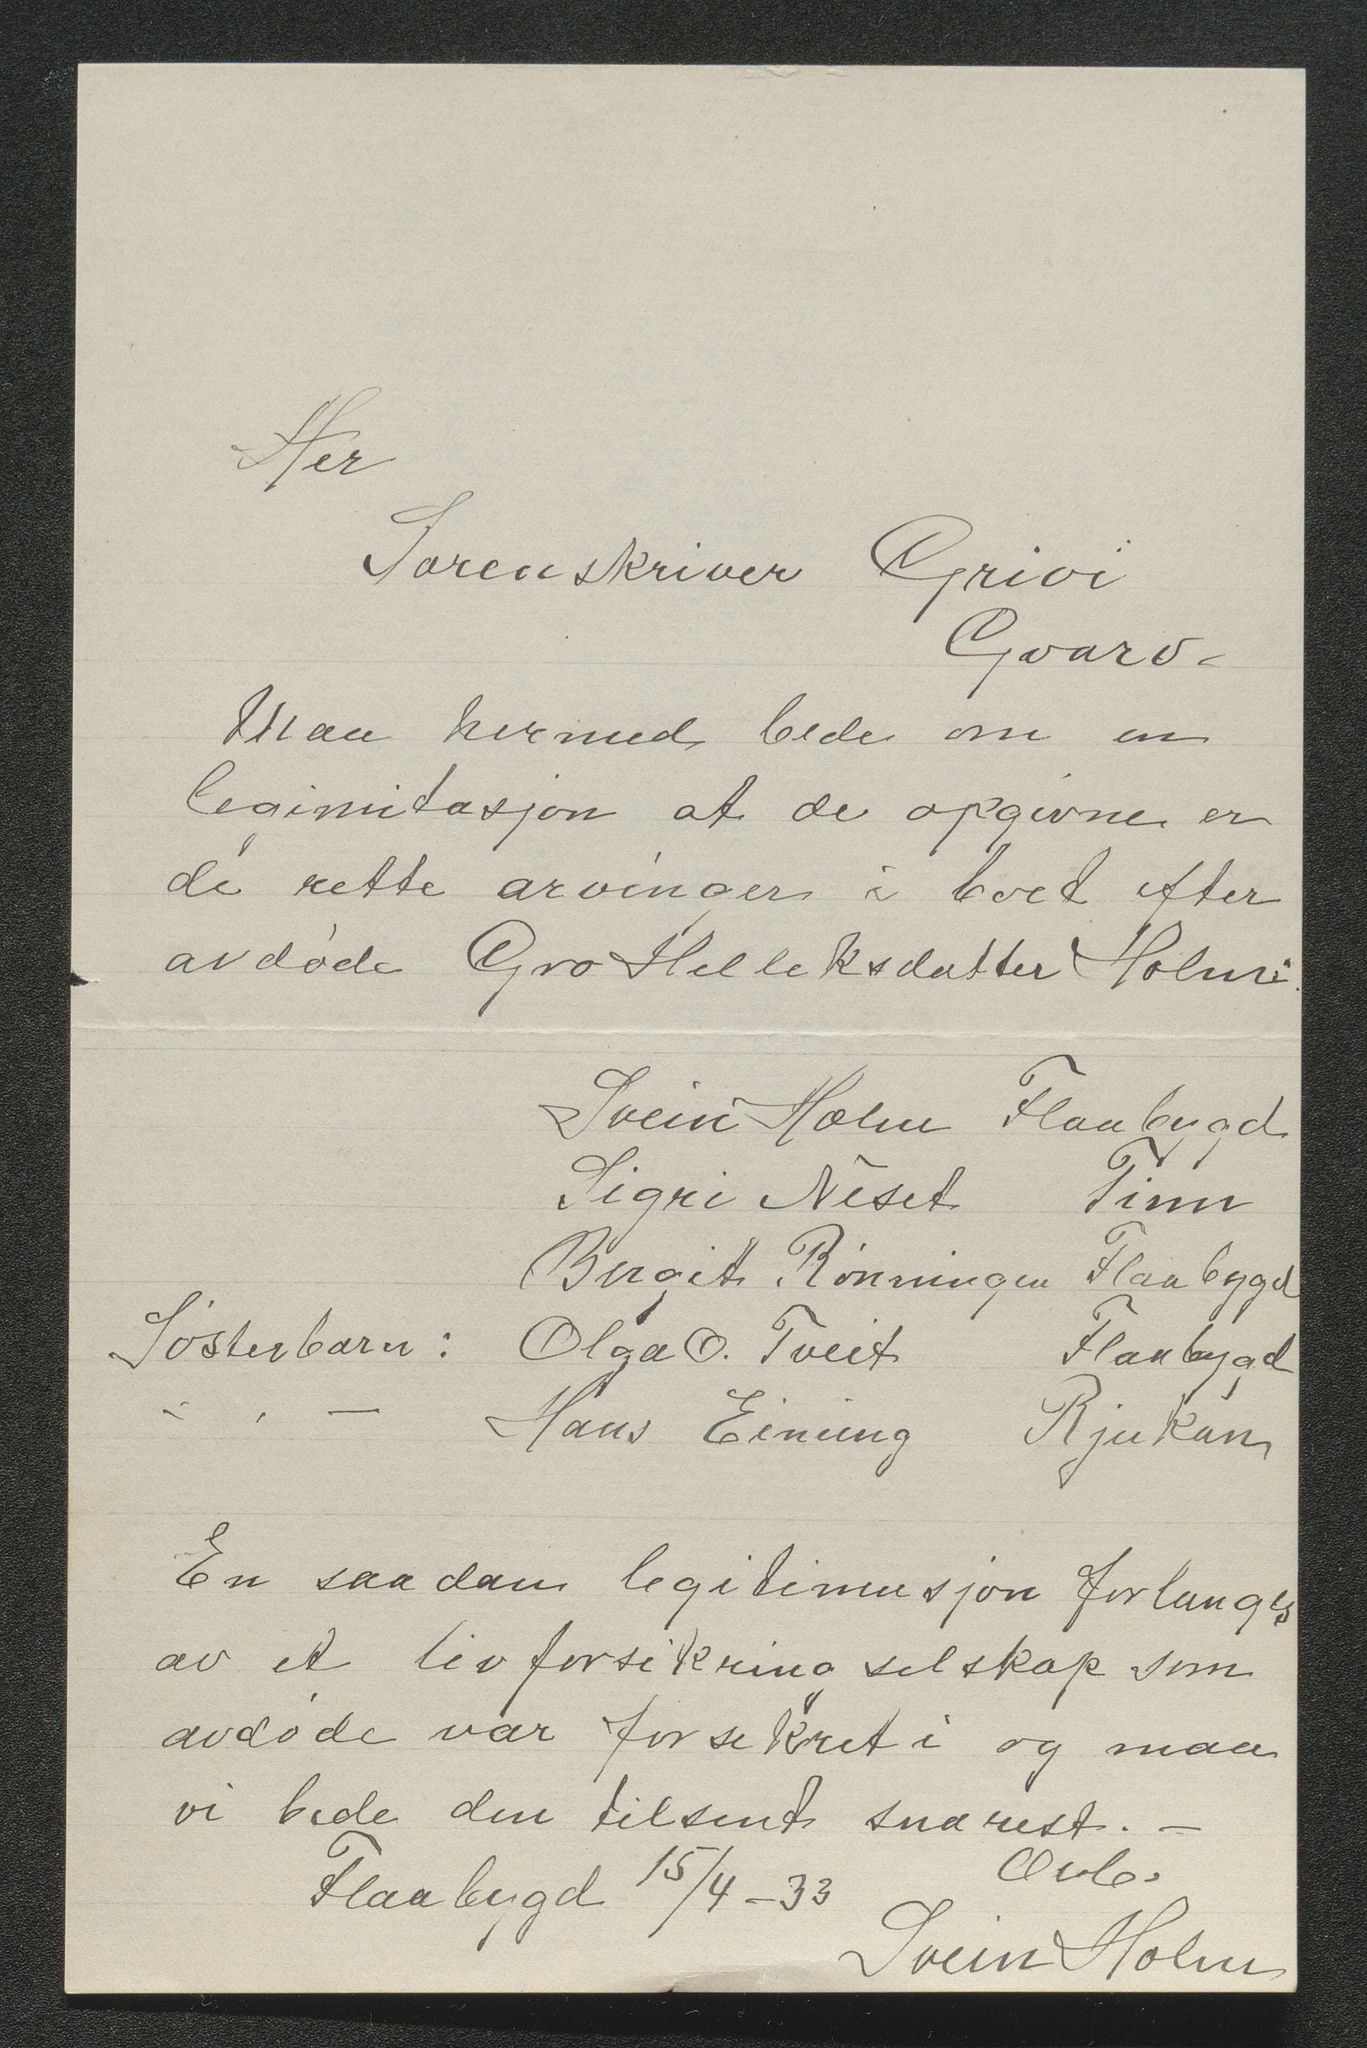 Her
Sorenskriver Grivi
Gvarv.
Maa hermed bede om en
legimitasjon at de opgivne er
de rette arvinger i boet efter
avdøde Gro Helleksdatter Holm:
Svein Holm Flaabygd
Sigri Neset Tinn
Bergit Rönningen Flaabygd
Søsterbarn: Olga O. Tveit Flaabygd
- " - Hans Einung Rjukan
En saadan legitimasjon forlanges
av et livforsikringselskap som
avdøde var forsekret i og maa
vi bede den tilsent snarest. -
Flaabygd 15/4-33 Ærb.
Svein Holm